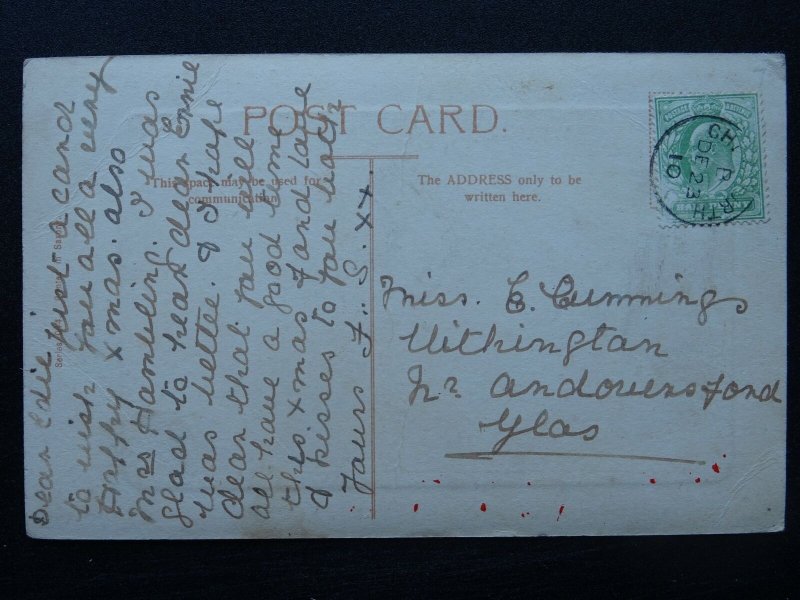 POST CARD.
This space may be used for
communication
The ADDRESS only to be
written here.
DE 23
10
Dear Edie just a card
to wish you all a very
Happy Xmas. also
Mrs Hambling. I was
glad to hear dear Ernie
was better. & I hope
dear that you will
all have a good time
this Xmas. Fond love
& kisses to you both
Yours F. S. xx.
Miss. E. Cummings
Withington
Nr. Andoversford
Glos